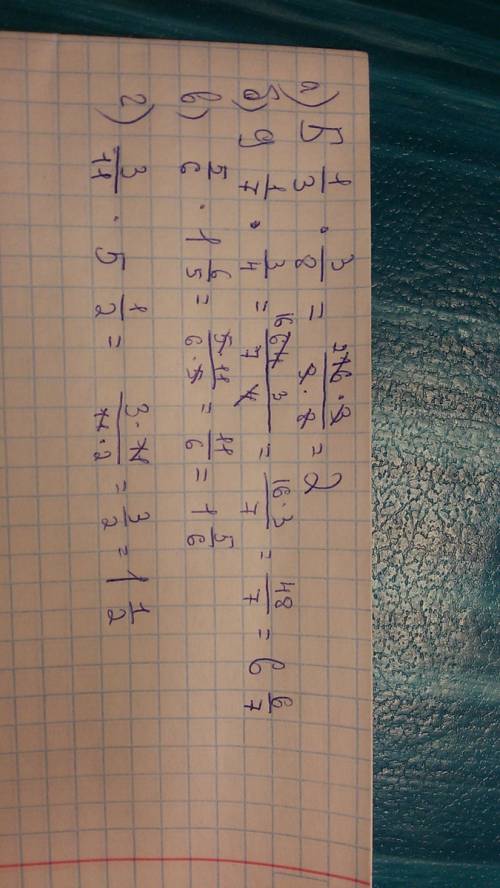 а) 5 1/3 · 3/8 = 16·3/3·8 = 2
б) 9 1/7 · 3/4 = 16 64 3/7 4 = 16·3/7 = 48/7 = 6 6/7
в) 5/6 · 1 6/5 = 5·11/6·5 = 11/6 = 1 5/6
г) 3/11 · 5 1/2 = 3·11/11·2 = 3/2 = 1 1/2